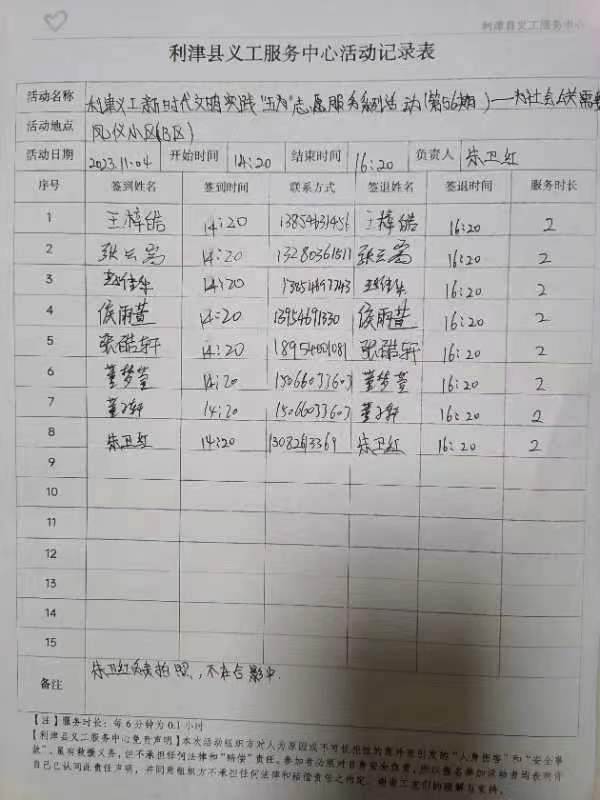 利津县义工服务中心
利津县义工服务中心活动记录表
活动名称 利津义工新时代文明实践"五为"志愿服务系列活动(第56期)——为社会公共需
活动地点 凤仪小区(B区)
活动日期 2023.11.04 开始时间 14:20 结束时间 16:20 负责人 朱卫红
序号 签到姓名 签到时间 联系方式 签退姓名 签退时间 服务时长
1 王梓皓 14:20 13854631456 王梓皓 16:20 2
2 张云嵩 14:20 13280361511 张云嵩 16:20 2
3 赵佳华 14:20 赵佳华 16:20 2
4 侯雨萱 14:20 13954691330 侯雨萱 16:20 2
5 张皓轩 14:20 张皓轩 16:20 2
6 董梦萱 14:20 15066033603 董梦萱 16:20 2
7 董子轩 14:20 15066033603 董子轩 16:20 2
8 朱卫红 14:20 朱卫红 16:20 2
9
10
11
12
13
14
15
备注 朱卫红负责拍照，不在合影中.
【注】服务时长：每6分钟为0.1小时
【利津县义工服务中心免责声明】本次活动组织方对人为原因或不可抗拒性的意外所引发的"人身伤害"和"安全事
故"，虽有救援义务，但不承担任何法律和"赔偿"责任。参加者必须对自身安全负责，所以报名参加活动者均表明许
自己已认同此责任声明，并同意组织方不承担任何法律和赔偿责任之约定。谢谢义工们的理解与支持。